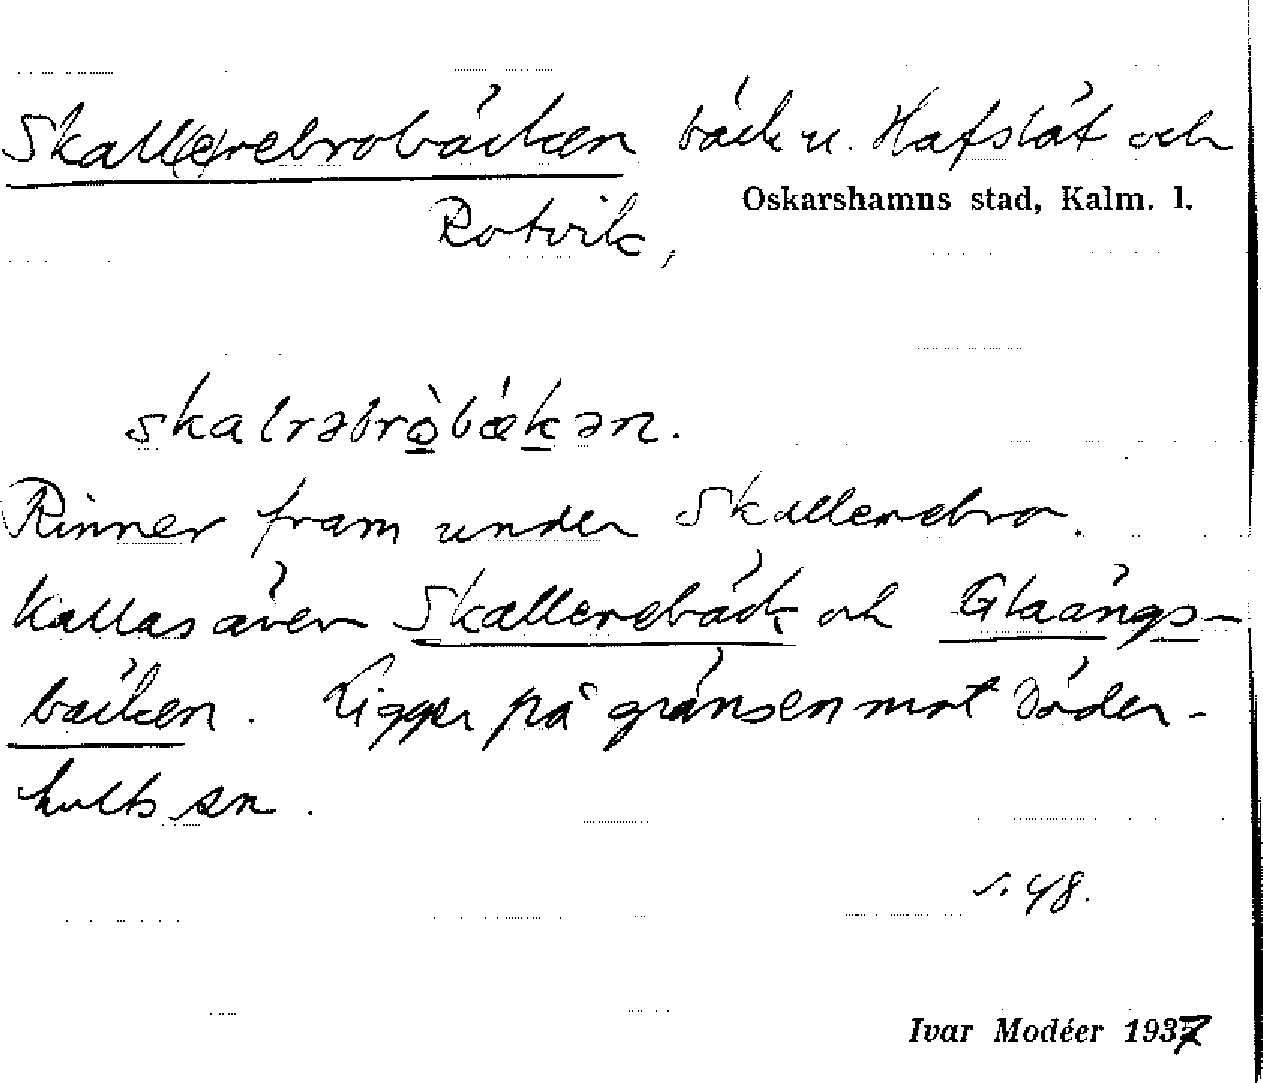 Skall(e)rebrobäcken bäck u. Hafslät och
Oskarshamns stad, Kalm. l.
Rotvik,
skalrəbrò̲bǽk̲ən.
Rinner fram under Skallerebro.
Kallas även Skallerebäck och Glaängs-
bäcken. Ligger på gränsen mot Döder-
hults sn.
s. 48.
Ivar Modéer 1937